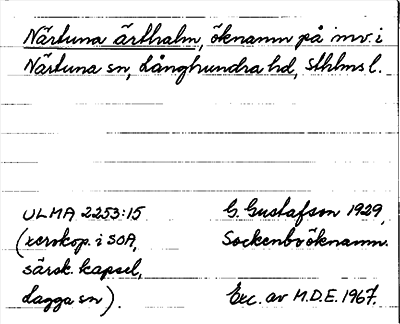 Närtuna ärthalm, öknamn på inv. i
Närtuna sn, Långhundra hd, Sthlms l.
ULMA 2253:15 G. Gustafson 1929,
(xerokop. i SOA, Sockenboöknamn.
särsk. kapsel,
Lagga sn). Exc. av M.D.E. 1967.